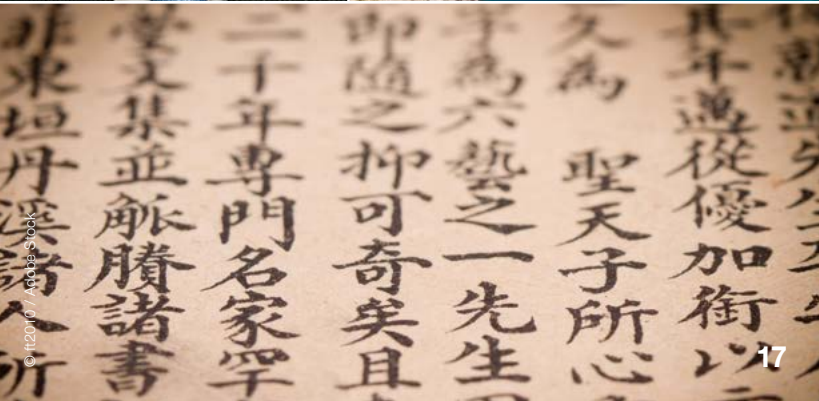 年邁從優加銜以
久為 聖天子所心
字為六藝之一先生
即隨之抑可奇矣且
二千年專門名家罕
堂文集並觚賸諸書
非東垣丹溪諸人所
© ft2010 / Adobe Stock
17